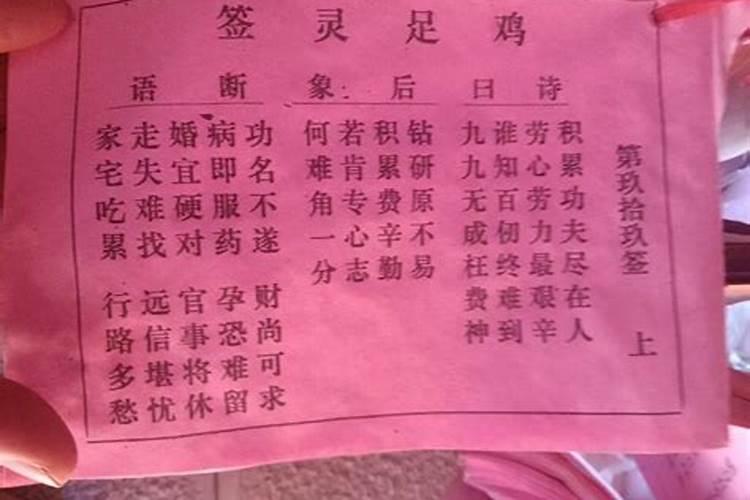 鸡足灵签
第玖拾玖签 上
诗曰
积累功夫尽在人
劳心劳力最艰辛
谁知百仞终难到
九九无成枉费神
后象:
钻研原不易
积累费辛勤
若肯专心志
何难角一分
断语
功名不遂 财尚可求
病即服药 孕恐难留
婚宜硬对 官事将休
走失难找 远信堪忧
家宅吃累 行路多愁